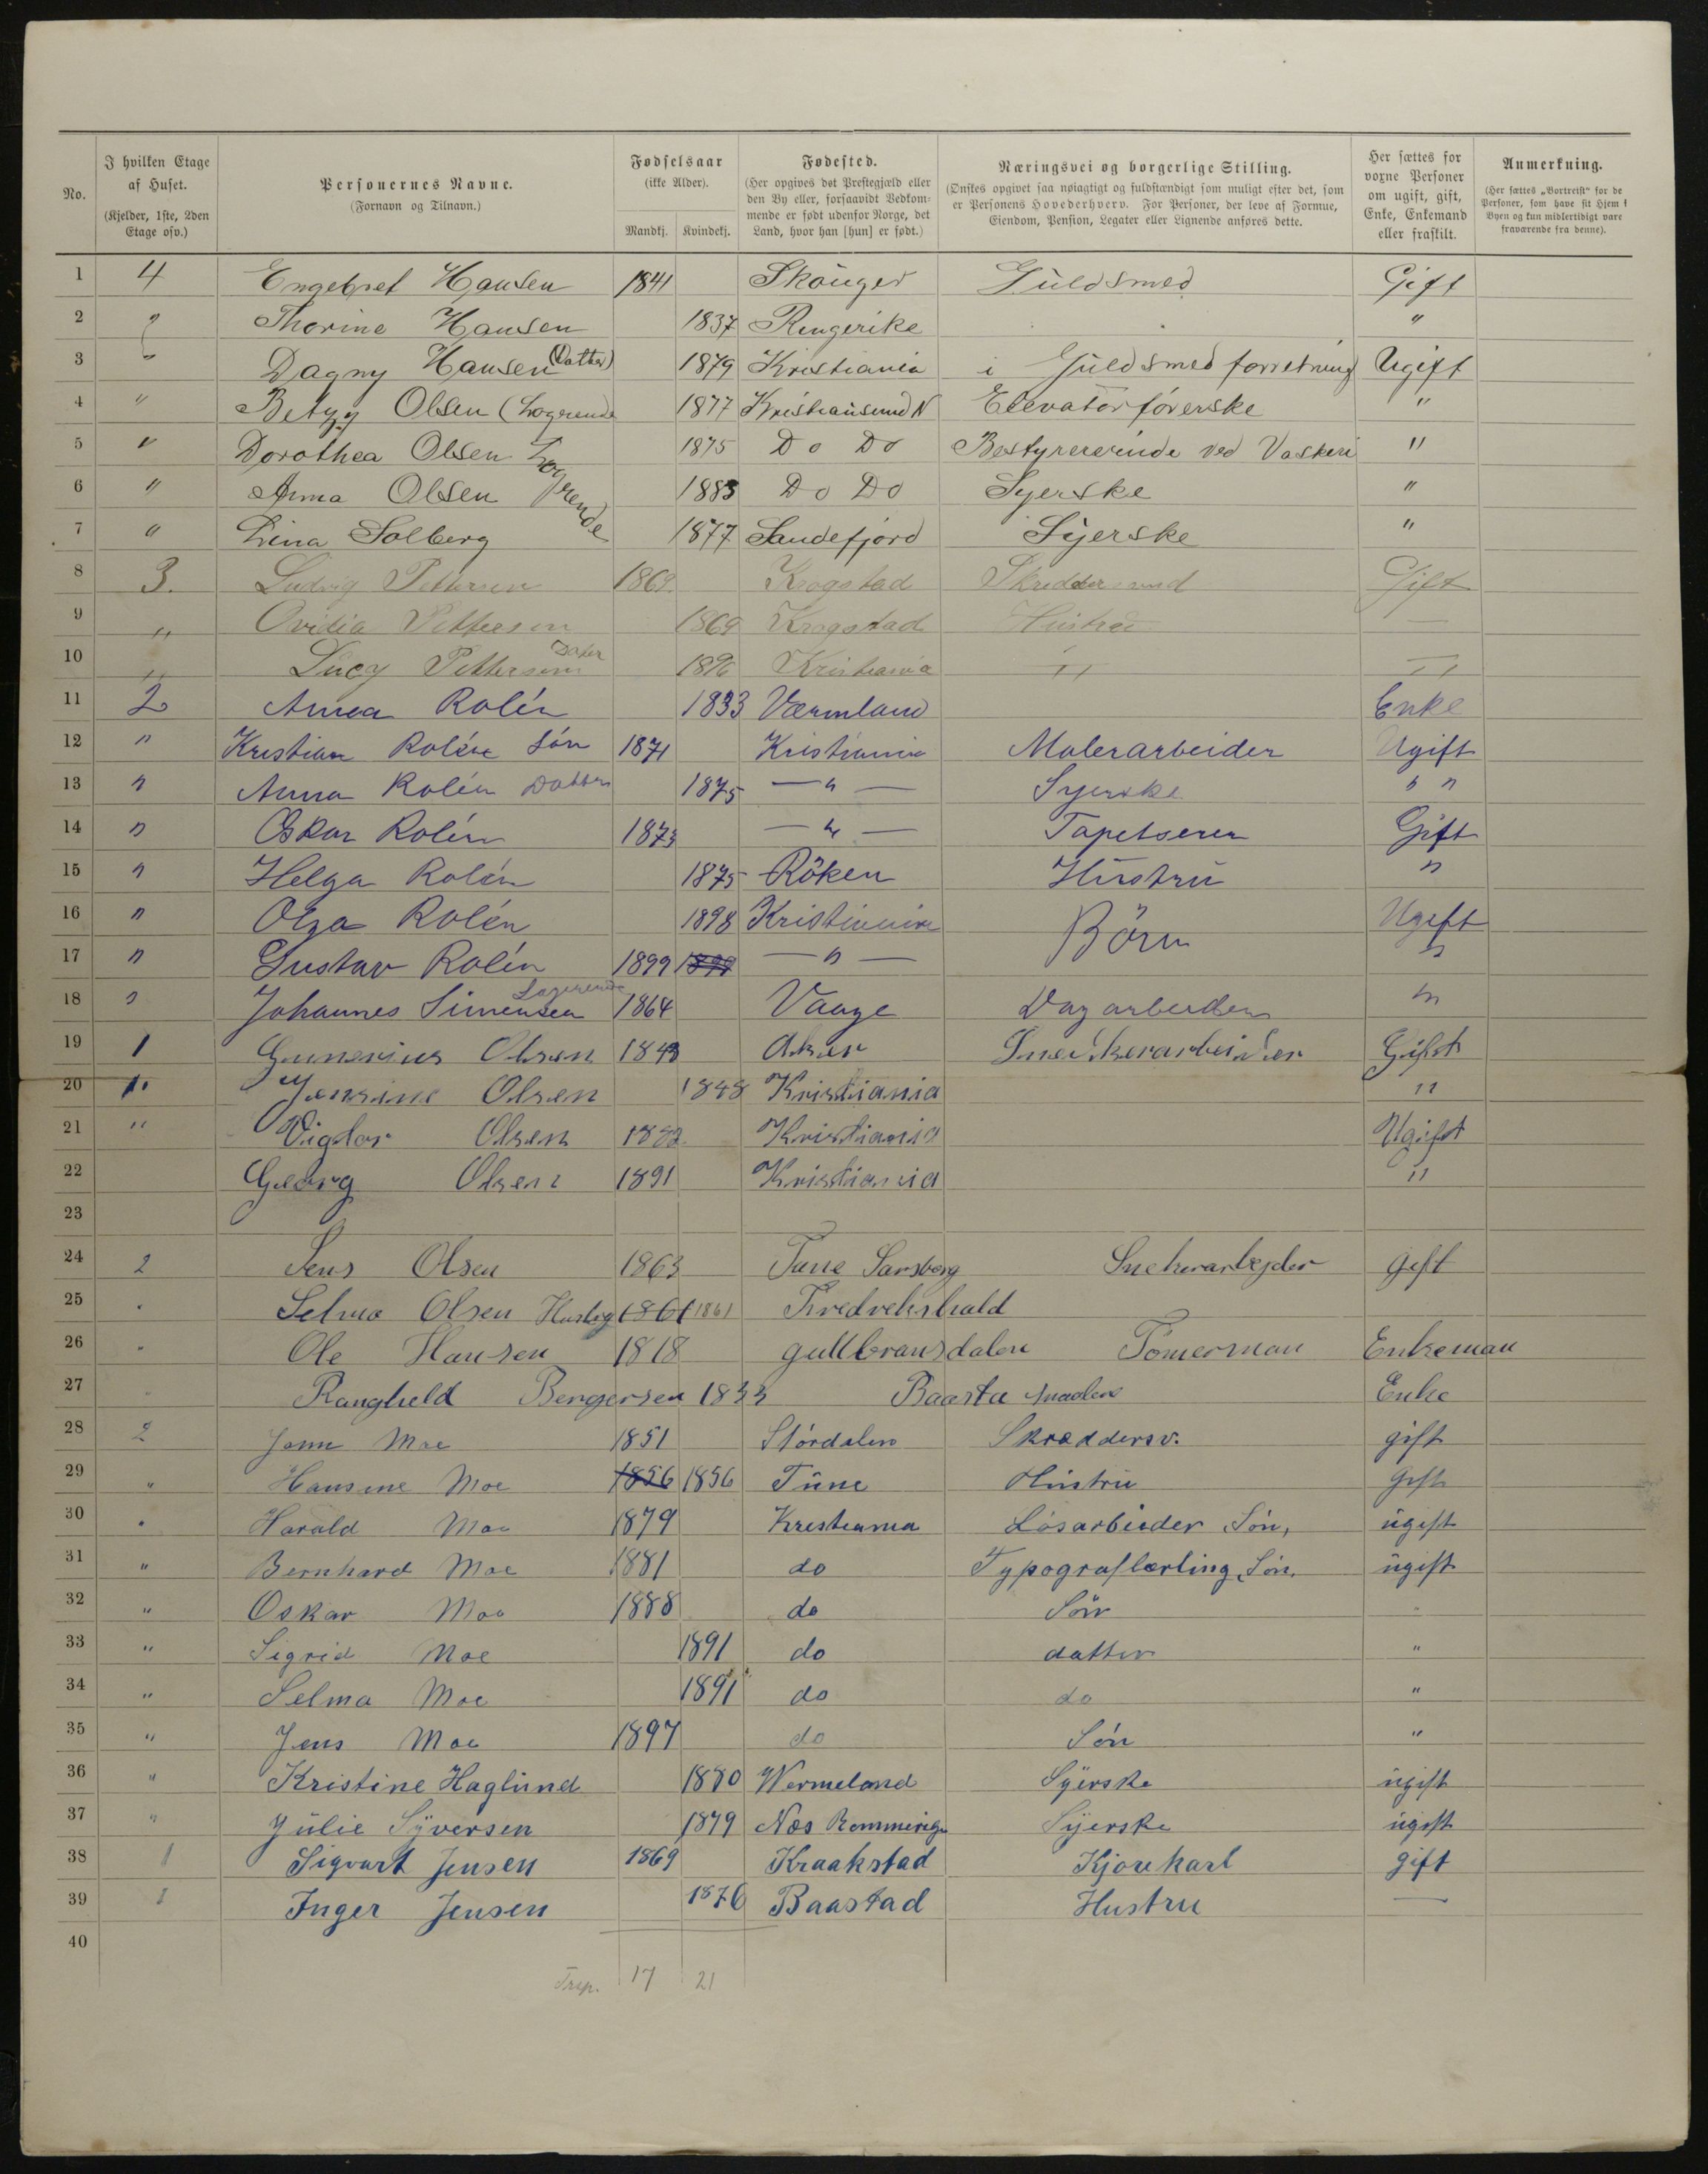 No.
I hvilken Etage af Huset.
(Kjelder, 1ste, 2den Etage osv.)
Personernes Navne.
(Fornavn og Tilnavn.)
Fødselsaar
(ikke Alder).
Mandkj. Kvindekj.
Fødested.
(Her opgives det Prestegjæld eller
den By eller, forsaavidt Vedkom-
mende er født udenfor Norge, det
Land, hvor han [hun] er født.)
Næringsvei og borgerlige Stilling.
(Ønskes opgivet saa nøiagtigt og fuldstændigt som muligt efter det, som
er Personens Hovederhverv. For Personer, der leve af Formue,
Eiendom, Pension, Legater eller Lignende anføres dette.
Her sættes for
voxne Personer
om ugift, gift,
Enke, Enkemand
eller fraskilt.
Anmerkning.
(Her sættes „Bortreist“ for de
Personer, som have sit Hjem i
Byen og kun midlertidigt vare
fraværende fra denne).
1 4 Engebret Hansen 1841 Skouger Guldsmed Gift
2 " Thorine Hansen 1837 Ringerike "
3 " Dagny Hansen (Datter) 1879 Kristiania i Guldsmedforretning Ugift
4 " Betzy Olsen (Logerende 1877 Kristiansund N Elevatorførerske "
5 " Dorothea Olsen Logerende 1875 Do Do Bestyrererinde ved Vaskeri "
6 " Anna Olsen 1883 Do Do Syerske "
7 " Lina Solberg 1877 Sandefjord Syerske "
8 3. Ludvig Pettersen 1869 Krogstad Skreddersvend Gift
9 " Ovidia Pettersen 1869 Krogstad Hustru —
10 " Lucy Pettersen Dater 1896 Kristiania " "
11 2 Anna Rolén 1833 Værmland Enke
12 " Kristian Rolén Søn 1871 Kristiania Malerarbeider Ugift
13 " Anna Rolén Datter 1875 — " — Syerske " "
14 " Oskar Rolén 1873 — " — Tapetserer Gift
15 " Helga Rolén 1875 Røken Hustru "
16 " Olga Rolén 1898 Kristiania Børn Ugift
17 " Gustav Rolén 1899 1899 — " — "
18 " Johannes Simensen Logerende 1864 Vaage Dagarbeider "
19 1 Gunerius Olsen 1843 Aker Snedkerarbeider Gift
20 1. Jensine Olsen 1848 Kristiania "
21 " Vigtor Olsen 1882 Kristiania Ugift
22 Georg Olsen 1891 Kristiania "
23
24 2 Jens Olsen 1863 Tune Sarsborg Snekerarbejder gift
25 " Selma Olsen Hustrg 1861 1861 Fredrekshald
26 " Ole Hansen 1818 gullbransdalen Tømerman Enkeman
27 " Rangheld Bengersen 1833 Baasta Enke
28 2 John Moe 1851 Stördalen Skræddersv. gift
29 " Hansine Moe 1856 1856 Tune Hustru gift
30 " Harald Moe 1879 Kristiania Løsarbeider Søn, ugift
31 " Bernhard Moe 1881 do Typograflærling, Søn. ugift
32 " Oskar Moe 1888 do Søn "
33 " Sigrid Moe 1891 do datter "
34 " Selma Moe 1891 do do "
35 " Jens Moe 1897 do Søn "
36 " Kristine Haglund 1880 Wermeland Syerske ugift
37 " Julie Syversen 1879 Nes Rommerige Syerske ugift
38 1 Sigvart Jensen 1869 Kraakstad Kjørekarl gift
39 1 Inger Jensen 1876 Baastad Hustru —
40
17 21